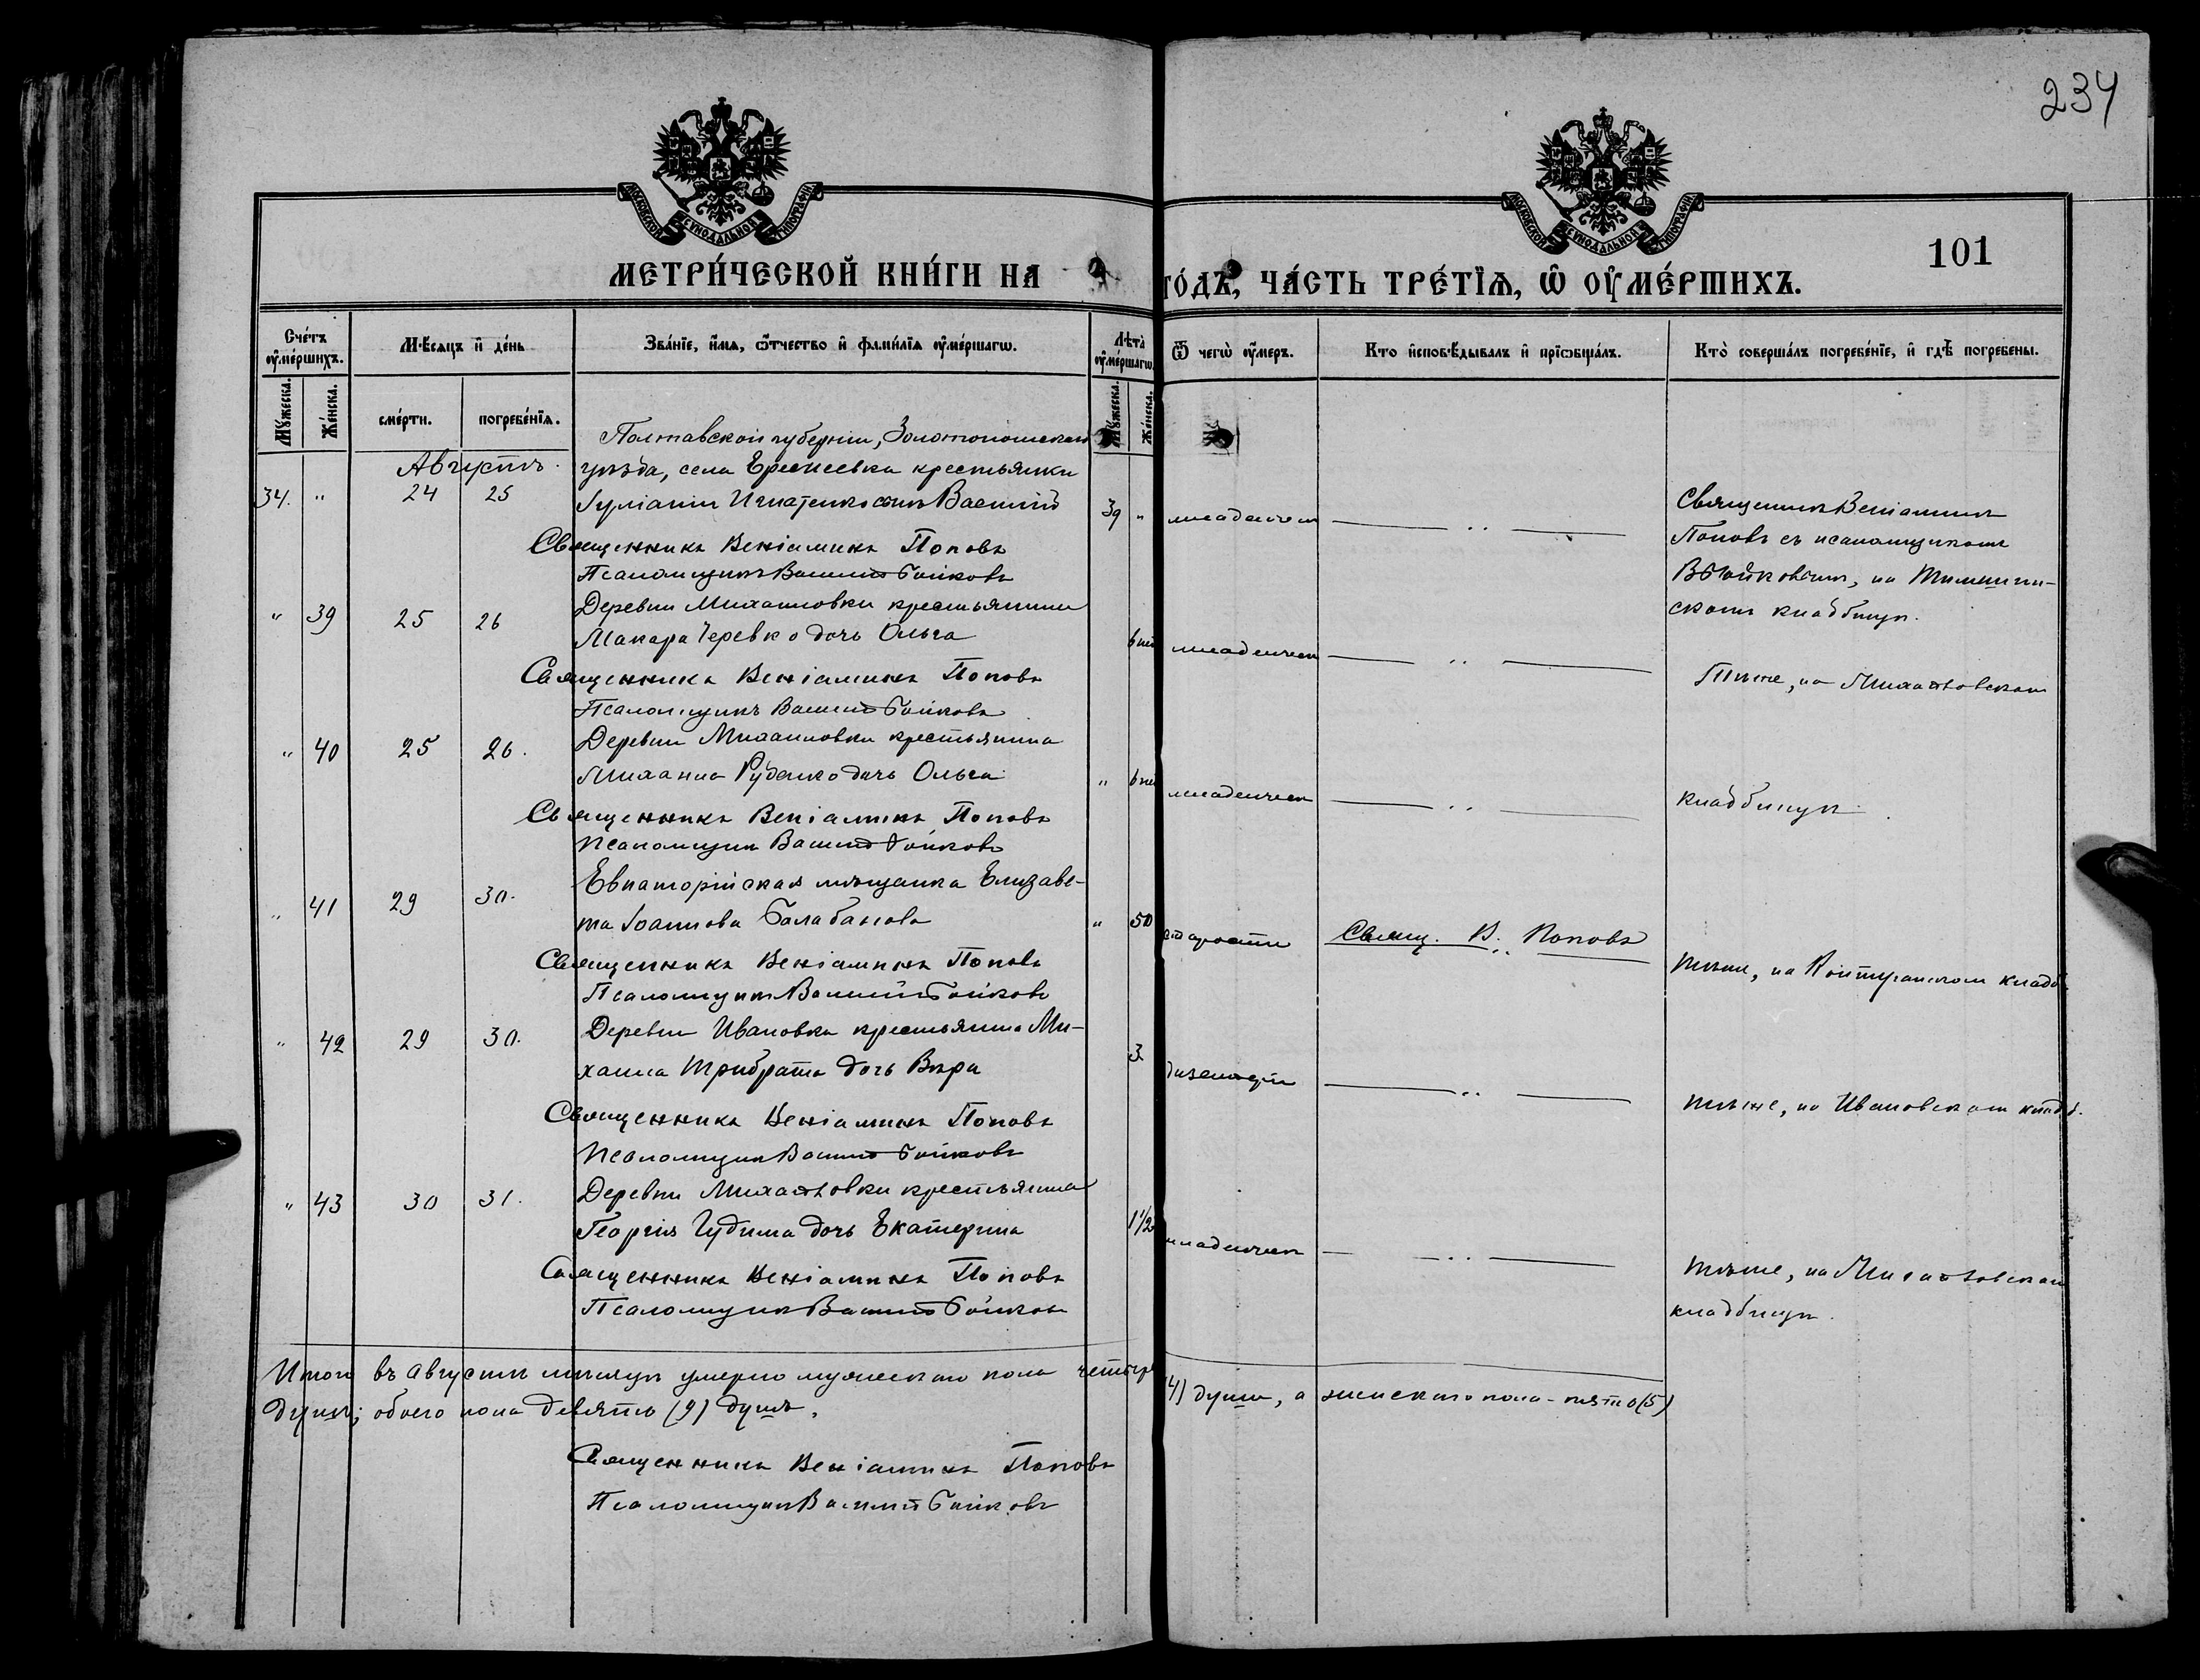 234
МОСКОВСКОЙ СѴНОДАЛЬНОЙ ТИПОГРАФІИ
МОСКОВСКОЙ СѴНОДАЛЬНОЙ ТИПОГРАФІИ
101
МЕТРИ́ЧЕСКОЙ КНИ́ГИ НА
ГО́ДЪ, ЧА́СТЬ ТРЕ́ТЇѦ, Ѡ҆ ОУ҆МЕ́РШИХЪ.
Сче́тъ оу҆ме́ршихъ.
Мѣсяцъ и҆ де́нь
Зва́нїе, и҆́мѧ, ѻ҆́тчество и҆ фами́лїѧ оу҆ме́ршагѡ.
Лѣта̀ оу҆ме́ршагѡ.
Ѿ чегѡ̀ оу҆́меръ.
Кто̀ и҆сповѣ́дывалъ и҆ прїѡбща́лъ.
Кто̀ соверша́лъ погребе́нїе, и҆ гдѣ̀ погребены.
Мꙋ́жеска.
Же́нска.
сме́рти.
погребе́нїѧ.
Мꙋ́жеска.
Же́нска.
Августъ.
Полтавской губерніи, Золотоношскаго
уѣзда, села крестьянки
34. " 24 25 Іуліаніи Игнатенко сынъ Василій 39 " младенческ — " —
Священникъ Веніаминъ
Поповъ съ псаломщикомъ
В Бойковымъ, на
скомъ кладбищѣ.
Священникъ Веніаминъ Поповъ
Псаломщикъ Василій Бойковъ
" 39 25 26 Деревни Михайловки крестьянина
Макара Черевко дочь Ольга 6 младенческ — " —
Тѣже, на Михайловскомъ
Священникъ Веніаминъ Поповъ
Псаломщикъ Василій Бойковъ
" 40 25 26. Деревни Михайловки крестьянина
Михаила Руденко дочь Ольга " 6 младенческ — " —
кладбищѣ
Священникъ Веніаминъ Поповъ
Псаломщикъ Василій Бойковъ
" 41 29 30. Евпаторійская мѣщанка Елизаве-
та Іоаннова Балабанова " 50 старости Свящ. В. Поповъ
Тѣже, на кладб.
Священникъ Веніаминъ Поповъ
Псаломщикъ Василій Бойковъ
" 42 29 30. Деревни Ивановка крестьянина Ми-
хаила Трибрата дочь Вѣра 3 — " —
тѣже, на Ивановскомъ кладб.
Священникъ Веніаминъ Поповъ
Псаломщикъ Василій Бойковъ
" 43 30 31. Деревни Михайловки крестьянина
Георгія Гудима дочь Екатерина 1 1/2 младенческ — " —
Тѣже, на Михайловскомъ
кладбищѣ.
Священникъ Веніаминъ Поповъ
Псаломщикъ Василій Бойковъ
Итого въ Августѣ мѣсяцѣ умерло мужескаго пола четыре (4) души, а женскаго пола – пять (5)
душъ; обоего пола девять (9) душъ.
Священникъ Веніаминъ Поповъ
Псаломщикъ Василій Бойковъ